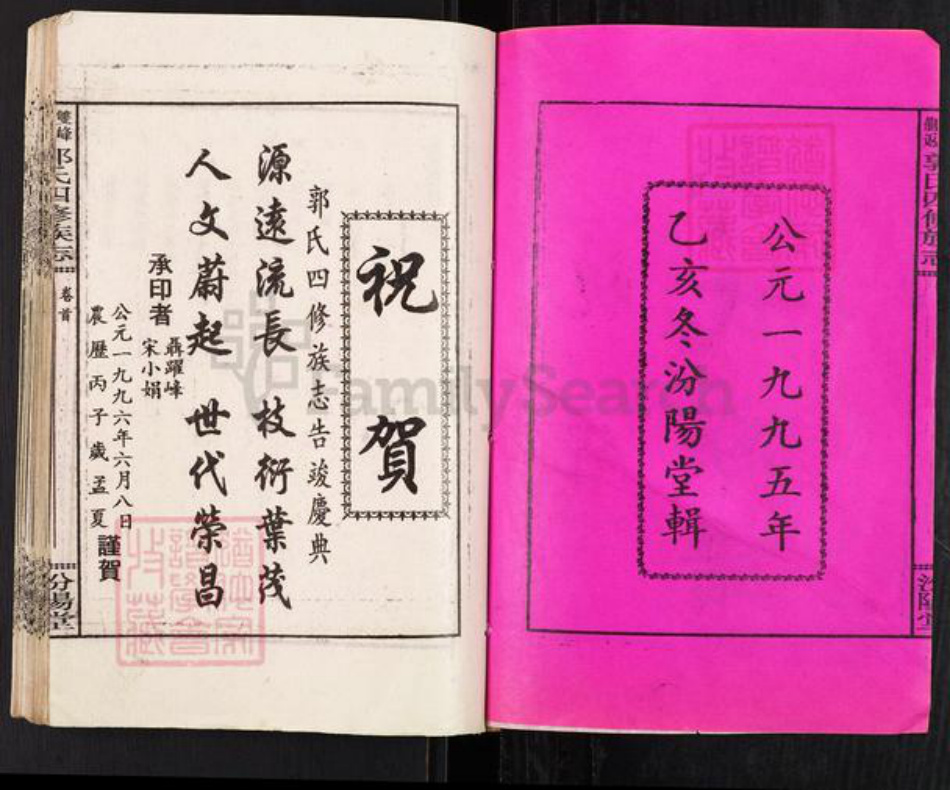 公元一九九五年
乙亥冬汾陽堂輯
郭氏四修族志
汾陽堂
祝賀
郭氏四修族志告竣慶典
源遠流長 枝衍葉茂
人文蔚起 世代榮昌
承印者 聶躍峰
宋小娟
公元一九九六年六月八日
農歷丙子歲孟夏 謹賀
雙峰郭氏四修族志
卷首
汾陽堂
FamilySearch